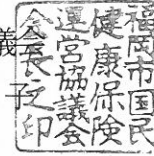 福岡市国民
健康保険
運営協議会
会長之印
議会
子